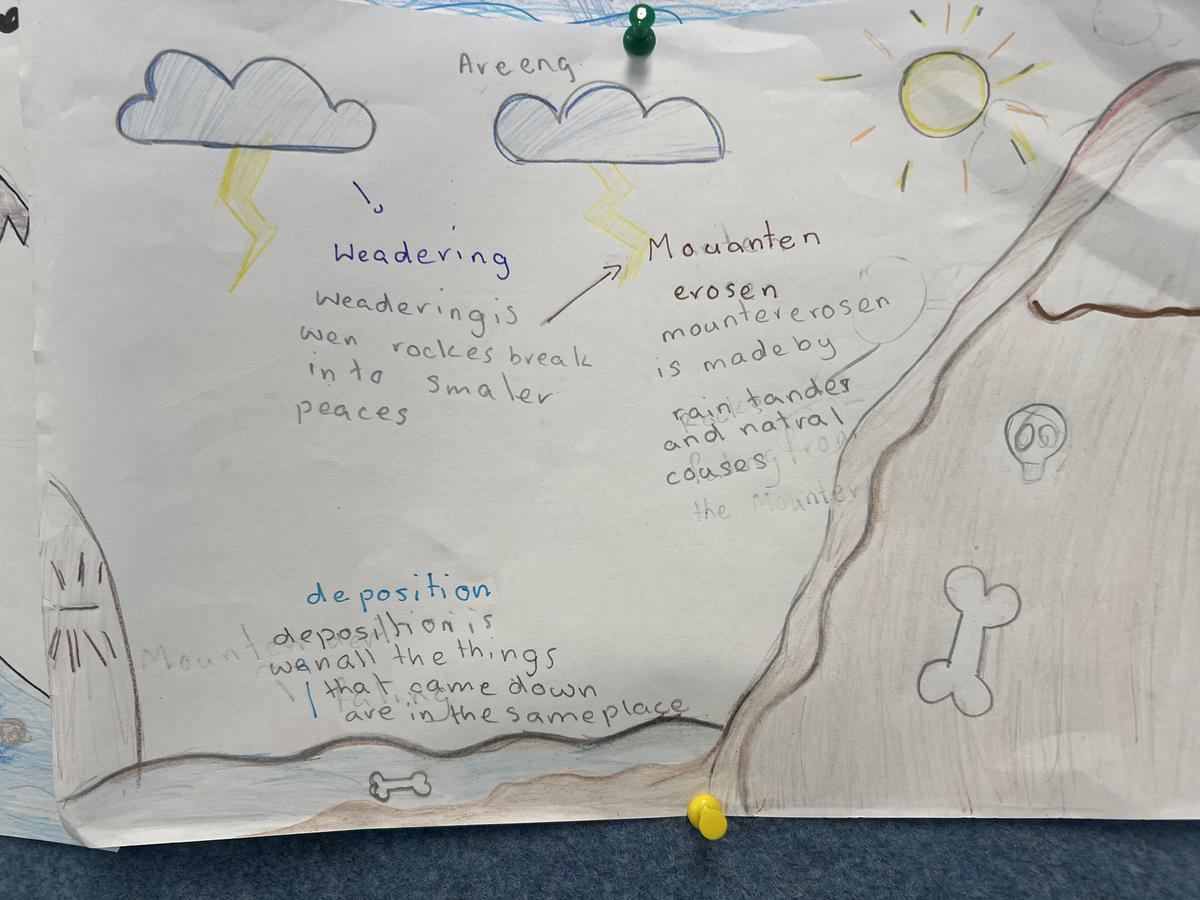 Areeng
Weadering
Weadering is
wen rockes break
in to smaler
peaces
Mouanten
erosen
mountererosen
is made by
rain tander
and natral
couses
the Mounter
deposition
deposition is
wenall the things
that came down
are in the same place